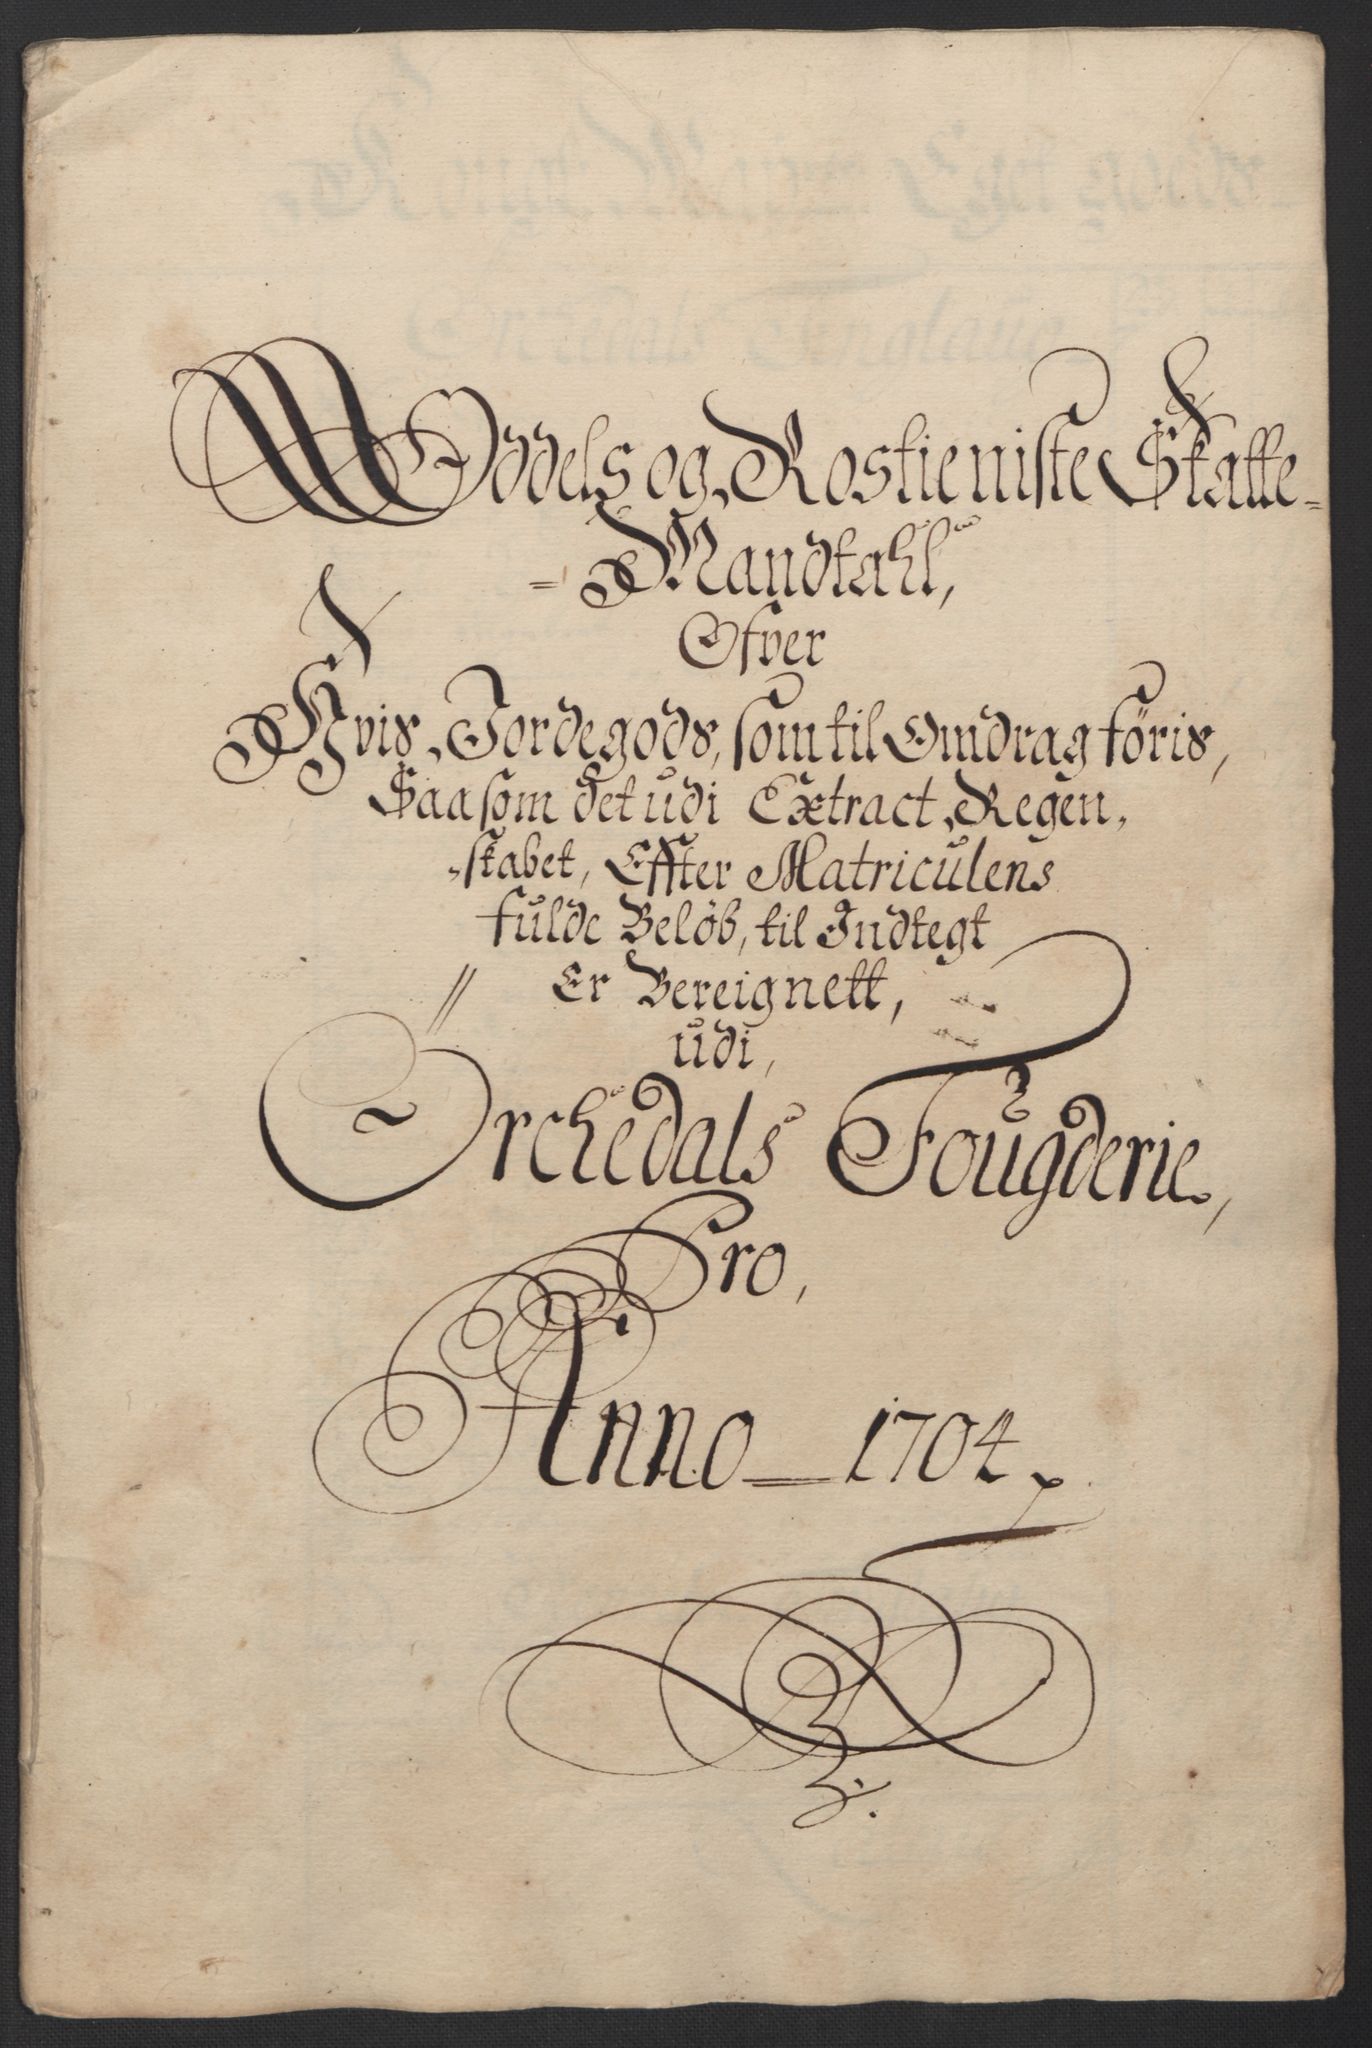 Oddels og Rostieniste Skatte=
=Mandtahl,
Ofver
Hvis Jordegods, som til Omdrag föris,
Saasom det udi Extract Regen,
,skabet, Effter Matriculens
fulde Belöb, til Indtegt
Er Bereignett,
udi,
Örchedals Fougderie,
Pro,
Anno = 1704.